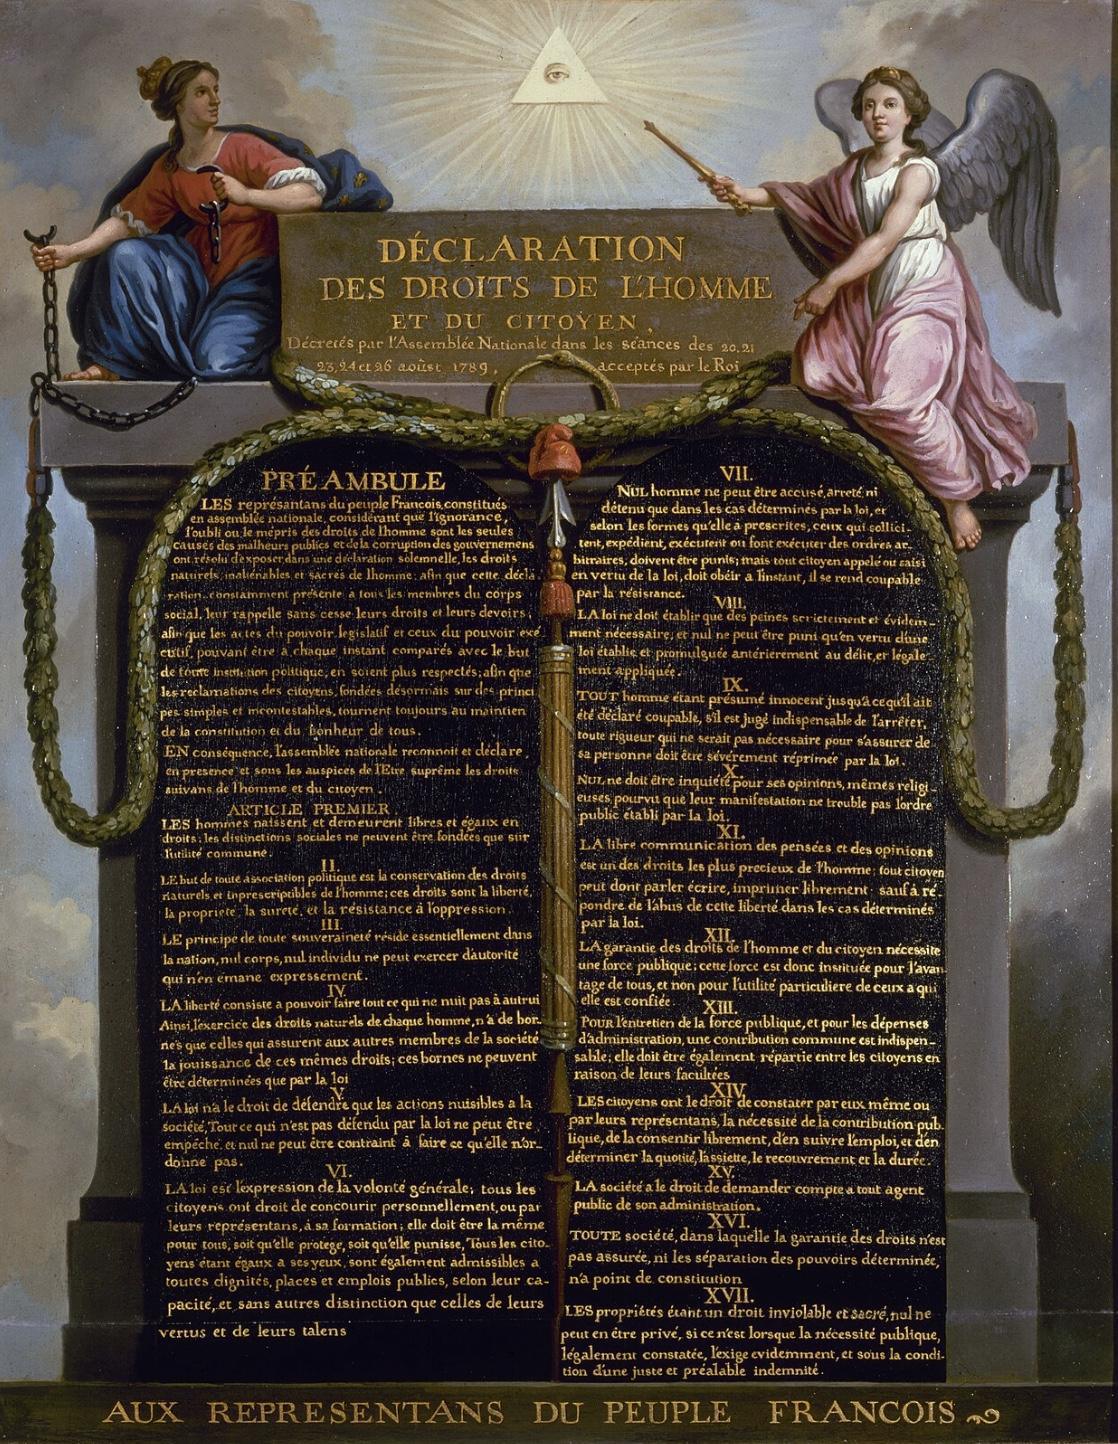 DÉCLARATION
DES DROITS DE L'HOMME
ET DU CITOYEN,
Décretés par l'Assemblée Nationale dans les séances des 20, 21
23, 24 et 26 aoûst 1789, acceptés par le Roi
PRÉAMBULE
LES représentans du peuple François, constitués
en assemblée nationale, considérant que l'ignorance,
l'oubli ou le mépris des droits de l'homme sont les seules
causes des malheurs publics et de la corruption des gouvernemens
ont résolu d'exposer, dans une déclaration solemnelle, les droits
naturels, inaliénables et sacrés de l'homme; afin que cette décla
ration, constamment présente a tous les membres du corps
social, leur rappelle sans cesse leurs droits et leurs devoirs;
afin que les actes du pouvoir législatif et ceux du pouvoir exé
cutif, pouvant être à chaque instant comparés avec le but
de toute institution politique, en soient plus respectés; afin que
les reclamations des citoyens, fondées désormais sur des princi
pes simples et incontestables, tournent toujours au maintien
de la constitution et du bonheur de tous.
EN conséquence, l'assemblée nationale reconnoit et déclare,
en presence et sous les auspices de l'Etre suprême les droits
suivans de l'homme et du citoyen.
ARTICLE PREMIER
LES hommes naissent et demeurent libres et égaux en
droits; les distinctions sociales ne peuvent être fondées que sur
l'utilité commune.
II.
LE but de toute association politique est la conservation des droits
naturels et inprescriptibles de l'homme; ces droits sont la liberté,
la propriete, la sureté, et la résistance à l'oppression.
III.
LE principe de toute souveraineté réside essentiellement dans
la nation, nul corps, nul individu ne peut exercer d'autorité
qui n'en émane expressement.
IV.
LA liberté consiste a pouvoir faire tout ce qui ne nuit pas à autrui
Ainsi, l'exercice des droits naturels de chaque homme, n'a de bor-
nes que celles qui assurent aux autres membres de la société
la jouissance de ces mêmes droits; ces bornes ne peuvent
être déterminées que par la loi
V.
LA loi n'a le droit de défendre que les actions nuisibles a la
société, Tout ce qui n'est pas défendu par la loi ne peut être
empêché, et nul ne peut être contraint à faire ce qu'elle n'or-
donne pas.
VI.
LA loi est l'expression de la volonté générale; tous les
citoyens ont droit de concourir personnellement, ou par
leurs représentans, à sa formation; elle doit être la même
pour tous, soit qu'elle protege, soit qu'elle punisse, Tous les cito-
yens étant égaux a ses yeux, sont également admissibles a
toutes dignités, places et emplois publics, selon leur ca-
pacité, et sans autres distinction que celles de leurs
vertus et de leurs talens
VII.
NUL homme ne peut être accusé, arreté ni
détenu que dans les cas déterminés par la loi, et
selon les formes qu'elle à prescrites, ceux qui sollici-
tent, expédient, exécutent ou font exécuter des ordres ar-
bitraires, doivent être punis; mais tout citoyen appelé ou saisi
en vertu de la loi, doit obéir a l'instant, il se rend coupable
par la résistance.
VIII.
LA loi ne doit établir que des peines strictement et évidem-
ment nécessaire; et nul ne peut être puni qu'en vertu d'une
loi établie et promulguée antérierement au délit, et légale
ment appliquée.
IX.
TOUT homme étant présumé innocent jusqu'a ce qu'il ait
été déclaré coupable, s'il est jugé indispensable de l'arrêter,
toute rigueur qui ne serait pas nécessaire pour s'assurer de
sa personne doit être sévèrement réprimée par la loi.
X.
NUL ne doit être inquiété pour ses opinions, mêmes religi
euses, pourvu que leur manifestation ne trouble pas l'ordre
public établi par la loi.
XI.
LA libre communication des pensées et des opinions
est un des droits les plus precieux de l'homme; tout citoyen
peut dont parler écrire, imprimer librement; sauf à ré
pondre de l'abus de cette liberté dans les cas déterminés
par la loi.
XII.
LA garantie des droits de l'homme et du citoyen nécessite
une force publique; cette force est donc instituée pour l'avan
tage de tous, et non pour l'utilité particuliere de ceux a qui
elle est confiée.
XIII.
POUR l'entretien de la force publique, et pour les dépenses
d'administration, une contribution commune est indispen-
sable; elle doit être également répartie entre les citoyens en
raison de leurs facultées
XIV.
LES citoyens ont le droit de constater par eux même ou
par leurs représentans, la nécessité de la contribution pub-
lique, de la consentir librement, d'en suivre l'emploi, et d'en
déterminer la quotité, l'assiette, le recouvrement et la durée.
XV.
LA société a le droit de demander compte a tout agent
public de son administration.
XVI.
TOUTE société, dans laquelle la garantie des droits n'est
pas assurée, ni les séparation des pouvoirs déterminée,
n'a point de constitution
XVII.
LES propriétés étant un droit inviolable et sacré, nul ne
peut en être privé, si ce n'est lorsque la nécessité publique,
légalement constatée, l'exige evidemment, et sous la condi-
tion d'une juste et préalable indemnité.
AUX REPRESENTANS DU PEUPLE FRANCOIS